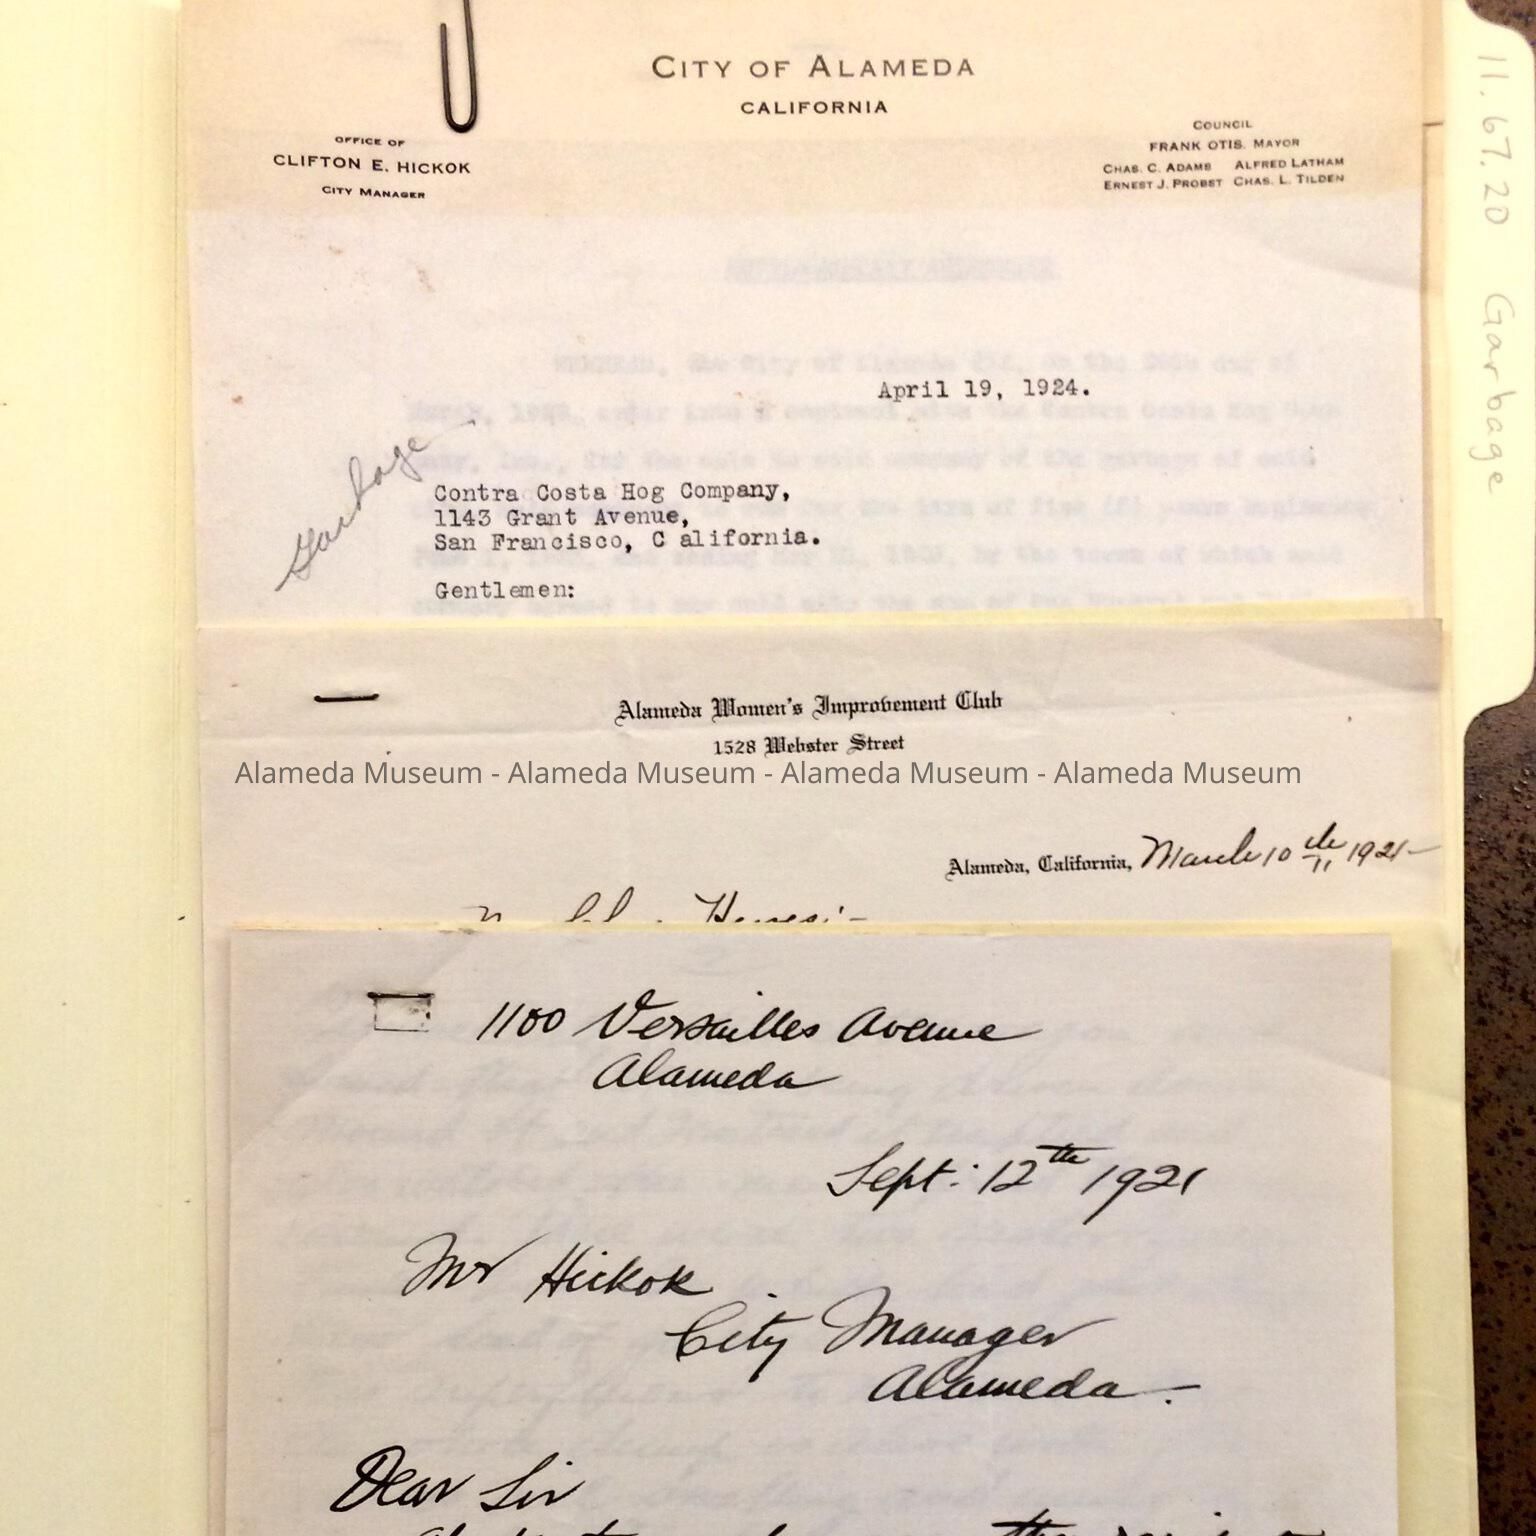 City of Alameda
California
Office of
Clifton E. Hickok
City Manager
Council
Frank Otis, Mayor
Chas. C. Adams Alfred Latham
Ernest J. Probst Chas. L. Tilden
11.67.20 Garbage
April 19, 1924.
Garbage
Contra Costa Hog Company,
1143 Grant Avenue,
San Francisco, C alifornia.
Gentlemen:
Alameda Women's Improvement Club
1528 Webster Street
Alameda Museum - Alameda Museum - Alameda Museum - Alameda Museum
Alameda, California, March 10th 1921
1100 Versailles Avenue
Alameda
Sept: 12th 1921
Mr Hickok
City Manager
Alameda.
Dear Sir